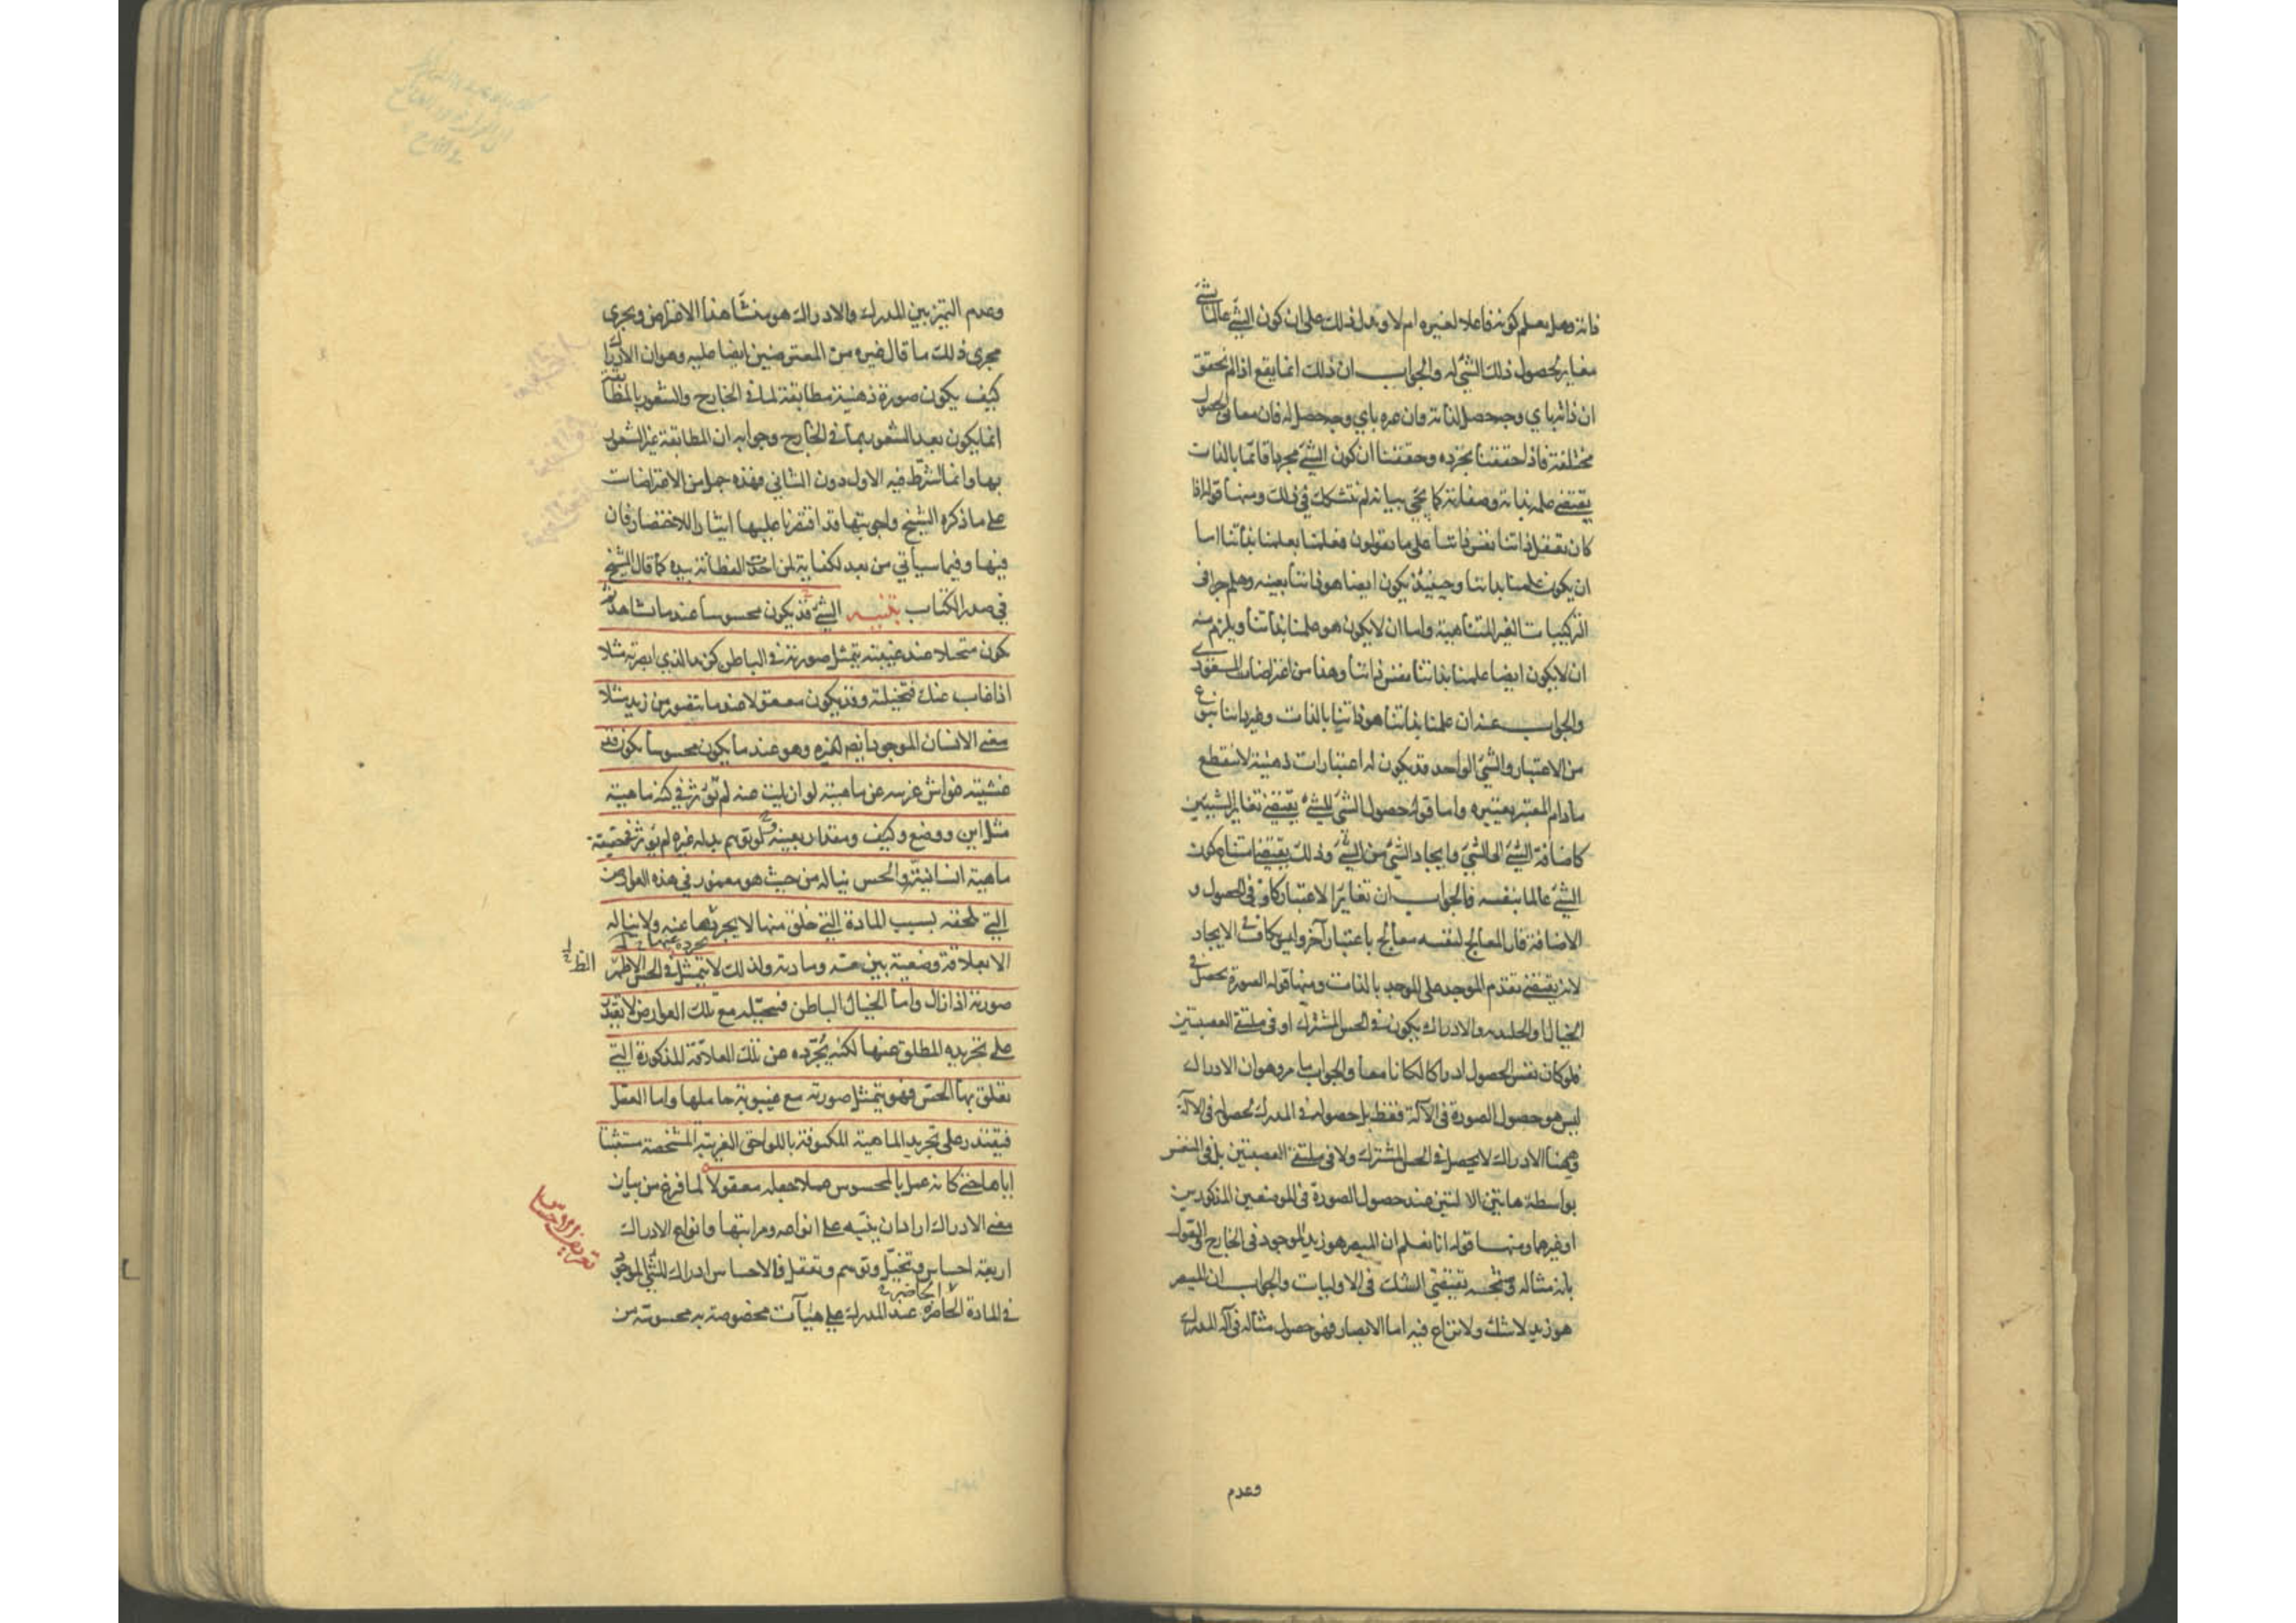 فانه وهل يعلم كونه فاعلا لغيره ام لا وهل ذلك على ان كون الشئ عالما بشئ
مغاير لحصول ذلك الشئ له والجواب ان ذلك انما يقع اذا لم نحقق
ان ذاته باي وجه حصل لذاته وان غيره باي وجه حصل له فان معاني الحصول
مختلفة فاذا حققنا تجرده وحققنا ان كون الشئ مجردا قائما بالذات
يقتضى علمه بذاته وصفاته كما يجئ بيانه لم نتشكك في ذلك ومنها قوله اذا
كان تعقل ذاتنا نفس ذاتنا على ما يقولون فعلمنا بعلمنا بذاتنا اما
ان يكون علمنا بذاتنا وحينئذ يكون ايضا هو ذاتنا بعينه وهلم جرا في
التركيبات الغير المتناهية واما ان لا يكون هو علمنا بذاتنا ويلزم منه
ان لا يكون ايضا علمنا بذاتنا نفس ذاتنا وهذا من اعتراضات المسعودي
والجواب عنه ان علمنا بذاتنا هو ذاتنا بالذات وغير ذاتنا بنوع
من الاعتبار والشئ الواحد قد يكون له اعتبارات ذهنية لا ينقطع
مادام المعتبر يعتبره واما قوله حصول الشئ للشئ يقتضى تغاير الشيئين
كاضافة الشئ الى الشئ وايجاد الشئ من الشئ وذلك يقتضى امتناع كون
الشئ عالما بنفسه فالجواب ان تغاير الاعتبار كاف في الحصول و
الاضافة فان المعالج لنفسه معالج باعتبار آخر وليس كاف في الايجاد
لانه يقتضى تقدم الموجد على الموجد بالذات ومنها قوله الصورة تحصل في
الخيال او الجليدية والادراك يكون في الحس المشترك او في ملتقى العصبتين
فلو كان نفس الحصول ادراكا لكانا معا والجواب ما مر وهو ان الادراك
ليس هو حصول الصورة في الآلة فقط بل حصولها في المدرك لحصولها في الآلة
وههنا الادراك لا يحصل في الحس المشترك ولا في ملتقى العصبتين بل في النفس
بواسطة هاتين الالتين عند حصول الصورة في الموضعين المذكورين
او غيرهما ومنها قوله انا نعلم ان المبصر هو زيد الموجود في الخارج والقول
بانه مثاله وشبحه يقتضى الشك في الاوليات والجواب ان المبصر
هو زيد لا شك ولا نزاع فيه اما الابصار فهو حصول مثاله في آلة المدرك
وعدم
وعدم التميز بين المدرك والادراك هو منشأ هذا الاعتراض ويجرى
مجرى ذلك ما قال غيره من المعترضين ايضا عليه وهو ان الادراك
كيف يكون صورة ذهنية مطابقة لما في الخارج والشعور بالمطابقة
انما يكون بعد الشعور بما في الخارج وجوابه ان المطابقة غير الشعور
بها وانما الشرط فيه الاول دون الثاني فهذه جمل من الاعتراضات
على ما ذكره الشيخ واجوبتها قد اقتصرنا عليها ايثارا للاختصار فان
فيها وفيما سياتي من بعد لكفاية لمن اخذت الفطانة بيده كما قال الشيخ
في صدر الكتاب تنبيه الشئ قد يكون محسوسا عندما تشاهد ثم
يكون متخيلا عند غيبته بتمثل صورته في الباطن كزيد الذي ابصرته مثلا
اذا غاب عنك فتخيلته وقد يكون معقولا عندما تتصور من زيد مثلا
معنى الانسان الموجود ايضا لغيره وهو عندما يكون محسوسا يكون قد
غشيته غواش غريبة عن ماهيته لو ازيلت عنه لم تؤثر في كنه ماهيته
مثل اين ووضع وكيف ومقدار بعينه لو توهم بدله غيره لم يؤثر في حقيقة
ماهية انسانيته والحس يناله من حيث هو مغمور في هذه العوارض
التي تلحقه بسبب المادة التي خلق منها لا يجردها عنه ولا يناله
يجرده عنها
الا بعلاقة وضعية بين حسه ومادته ولذلك لا يتمثل في الحس الظاهر
صورته اذا زال واما الخيال الباطن فيتخيله مع تلك العوارض لا يقتدر
على تجريده المطلق عنها لكنه يجرده عن تلك العلاقة المذكورة التي
تعلق بها الحس فهو يتمثل صورته مع غيبوبة حاملها واما العقل
فيقتدر على تجريد الماهية المكنوفة باللواحق الغريبة المشخصة مستثبتا
اياها حتى كانه عمل بالمحسوس عملا جعله معقولا لما فرغ من بيان
معنى الادراك اراد ان ينبه على انواعه ومراتبها وانواع الادراك
اربعة احساس وتخيل وتوهم وتعقل فالاحساس ادراك للشئ الموجود
في المادة الحاضرة عند المدرك على هيآت مخصوصة به محسوسة من
الحاضرة
تعريف الاحساس